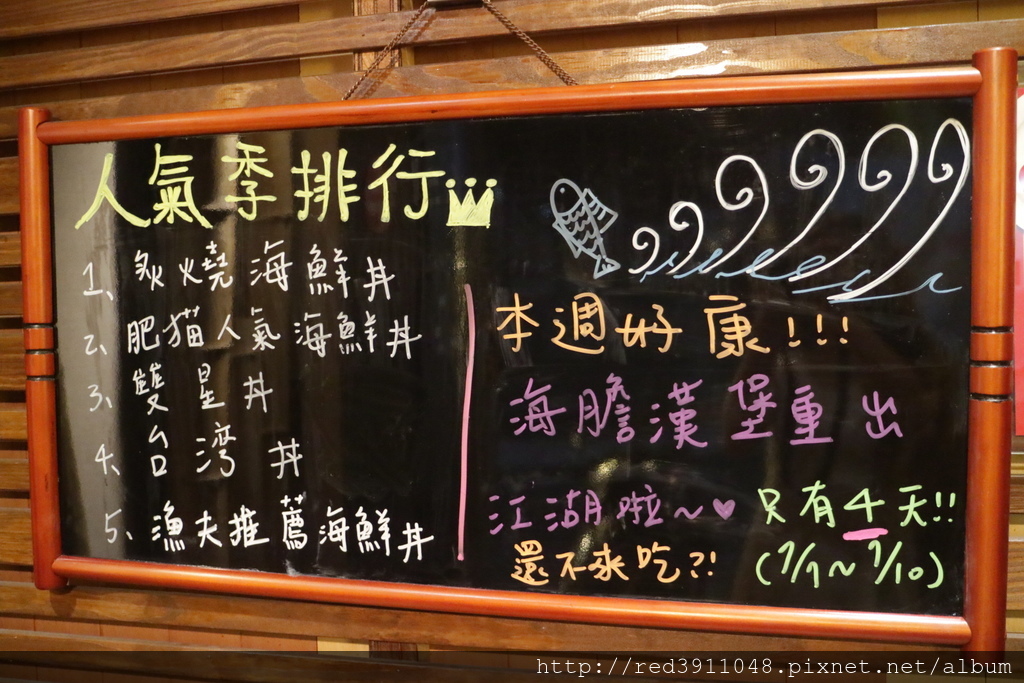 人氣季排行
1、炙燒海鮮丼
2、肥猫人氣海鮮丼
3、雙星丼
4、台湾丼
5、漁夫推薦海鮮丼
本週好康!!!
海膽漢堡重出
江湖啦~♥
還不來吃?!
只有4天!!
(7/7~7/10)
http://red3911048.pixnet.net/album